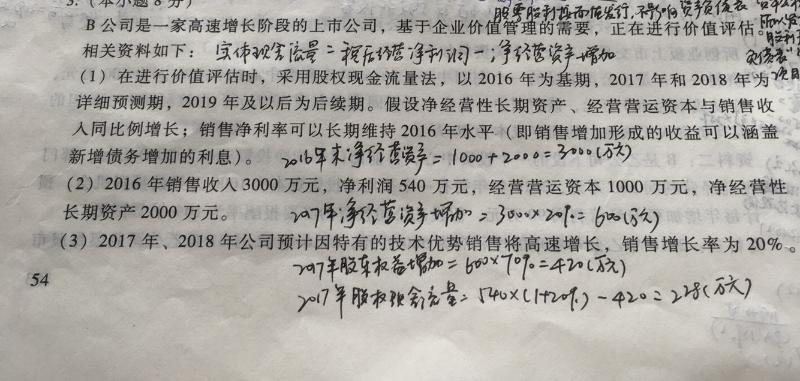 3.（本小题8分）
股票股利
B公司是一家高速增长阶段的上市公司，基于企业价值管理的需要，正在进行价值评估。
相关资料如下： 实体现金流量＝税后经营净利润－净经营资产增加
（1）在进行价值评估时，采用股权现金流量法，以2016年为基期，2017年和2018年为
详细预测期，2019年及以后为后续期。假设净经营性长期资产、经营营运资本与销售收
入同比例增长；销售净利率可以长期维持2016年水平（即销售增加形成的收益可以涵盖
新增债务增加的利息）。 2016年末净经营资产＝1000+2000＝3000(万元)
（2）2016年销售收入3000万元，净利润540万元，经营营运资本1000万元，净经营性
长期资产2000万元。 2017年净经营资产增加＝3000×20%＝600(万元)
（3）2017年、2018年公司预计因特有的技术优势销售将高速增长，销售增长率为20%。
2017年股东权益增加＝600×70%＝420(万元)
54
2017年股权现金流量＝540×(1+20%)－420＝228(万元)